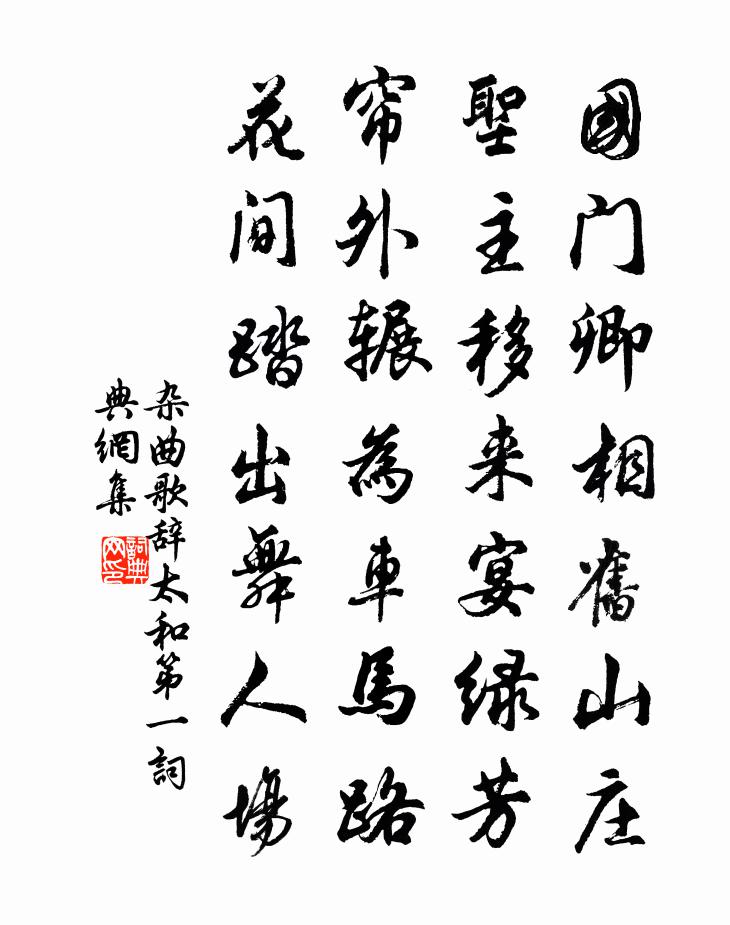 國门卿相舊山庄
聖主移来宴绿芳
帘外辗為車馬路
花间踏出舞人場
杂曲歌辞太和第一詞
典網集
詞典
网印